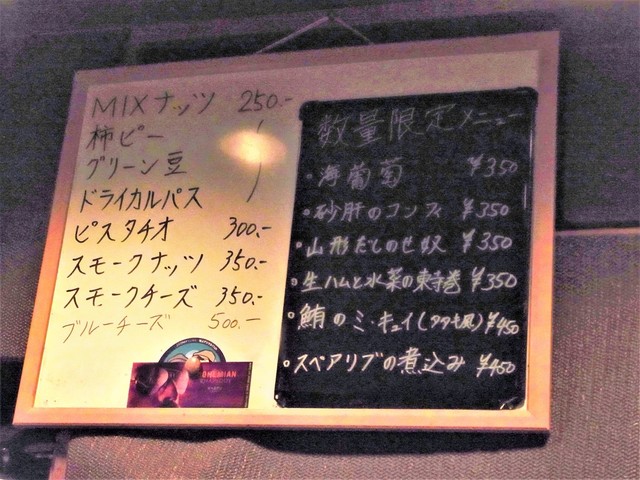 MIXナッツ 250.-
柿ピー 〃
グリーン豆
ドライカルパス 〃
ピスタチオ 300.-
スモークナッツ 350.-
スモークチーズ 350.-
ブルーチーズ 500.-
数量限定メニュー
・海葡萄 ¥350
・砂肝のコンフィ ¥350
・山形だしのせ奴 ¥350
・生ハムと水菜の東寺巻 ¥350
・鮪のミ・キュイ(タタキ風) ¥450
・スペアリブの煮込み ¥450
BOHEMIAN
RHAPSODY